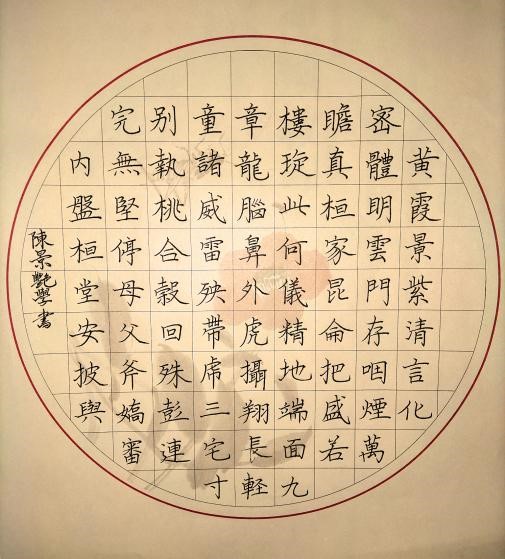 黄霞景紫清言化
密體明雲門存咽煙萬
瞻真桓家昆侖把盛若
樓琁此何儀精地端面九
章龍腦鼻外虎攝翔長軽
童諸威雷殃帶席三宅寸
別執桃合穀回殊彭連
完無堅停母父斧嬌審
内盤桓堂安披與
陳景艷學書